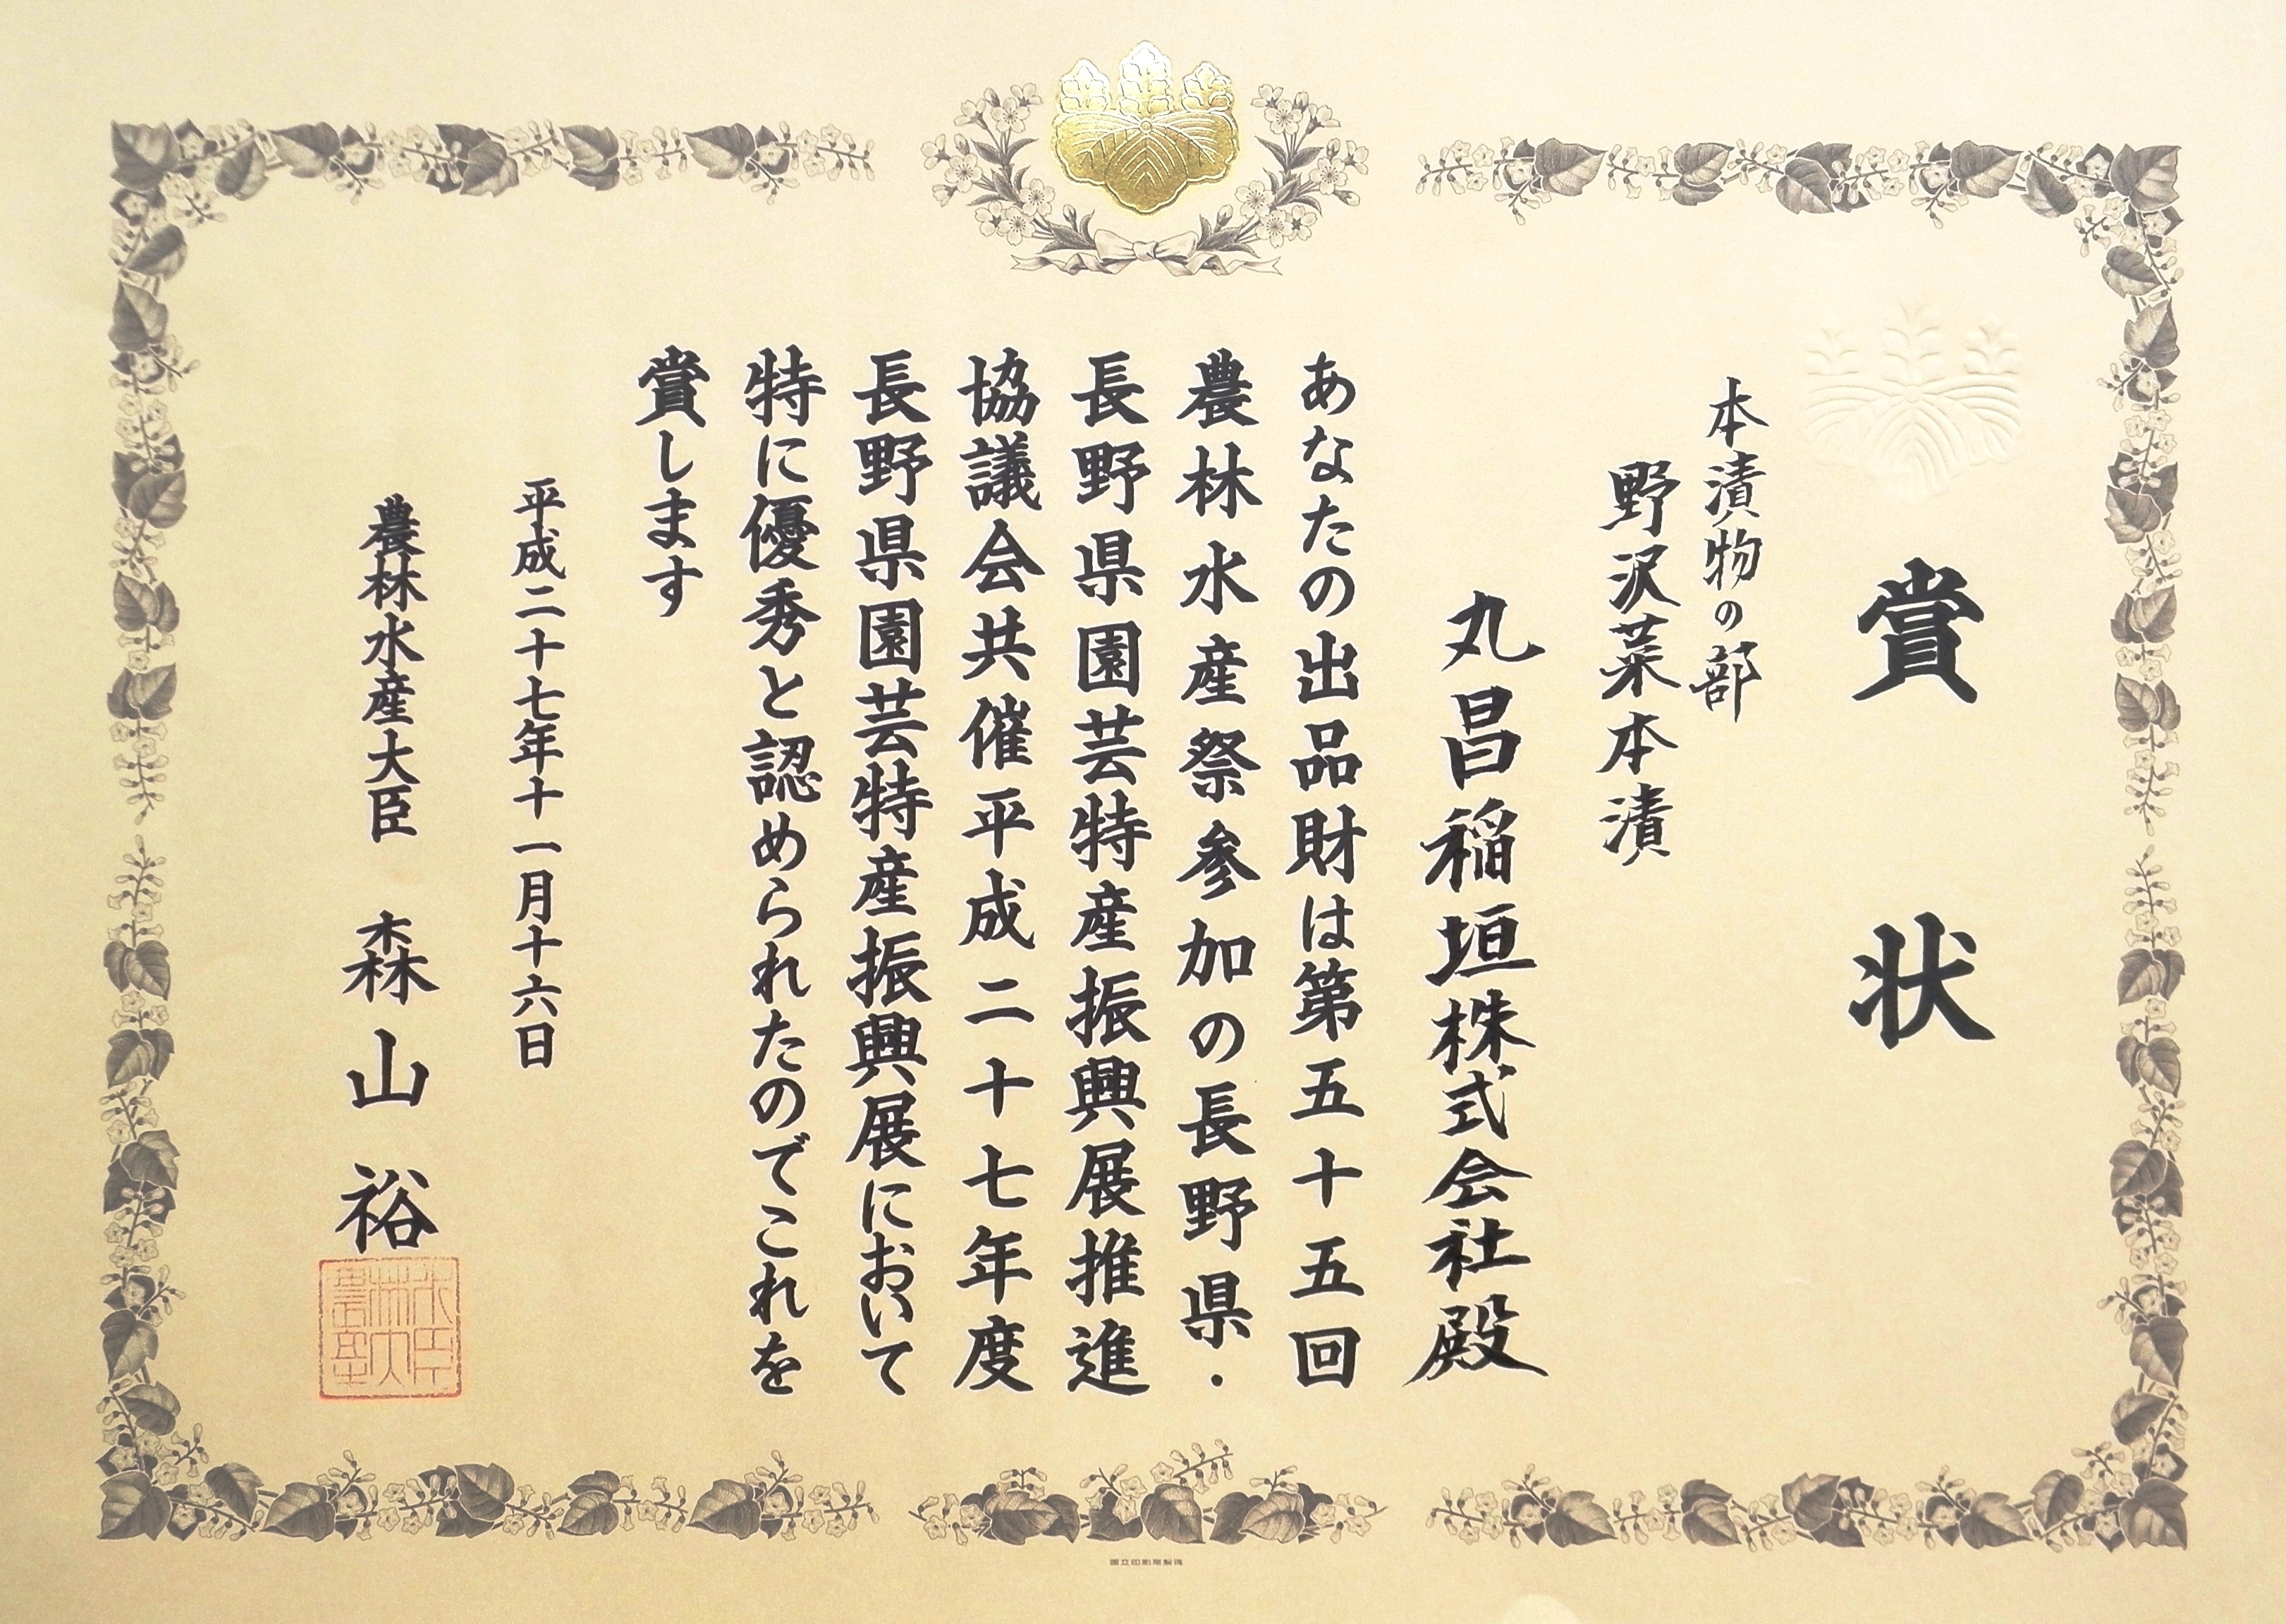 賞状
本漬物の部
野沢菜本漬
丸昌稲垣株式会社殿
あなたの出品財は第五十五回
農林水産祭参加の長野県・
長野県園芸特産振興展推進
協議会共催平成二十七年度
長野県園芸特産振興展において
特に優秀と認められたのでこれを
賞します
平成二十七年十一月十六日
農林水産大臣 森山裕